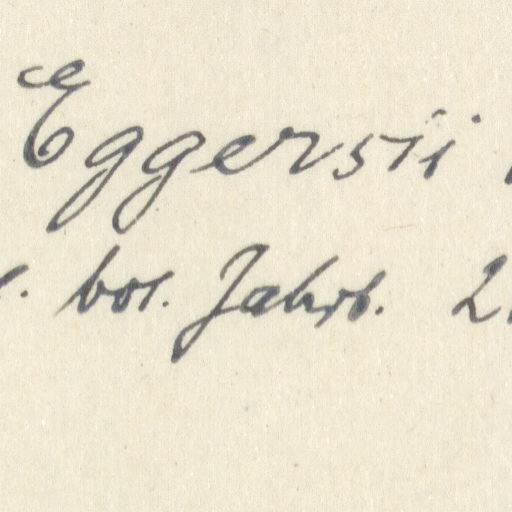 Eggersii
bot. Jahrb. 2